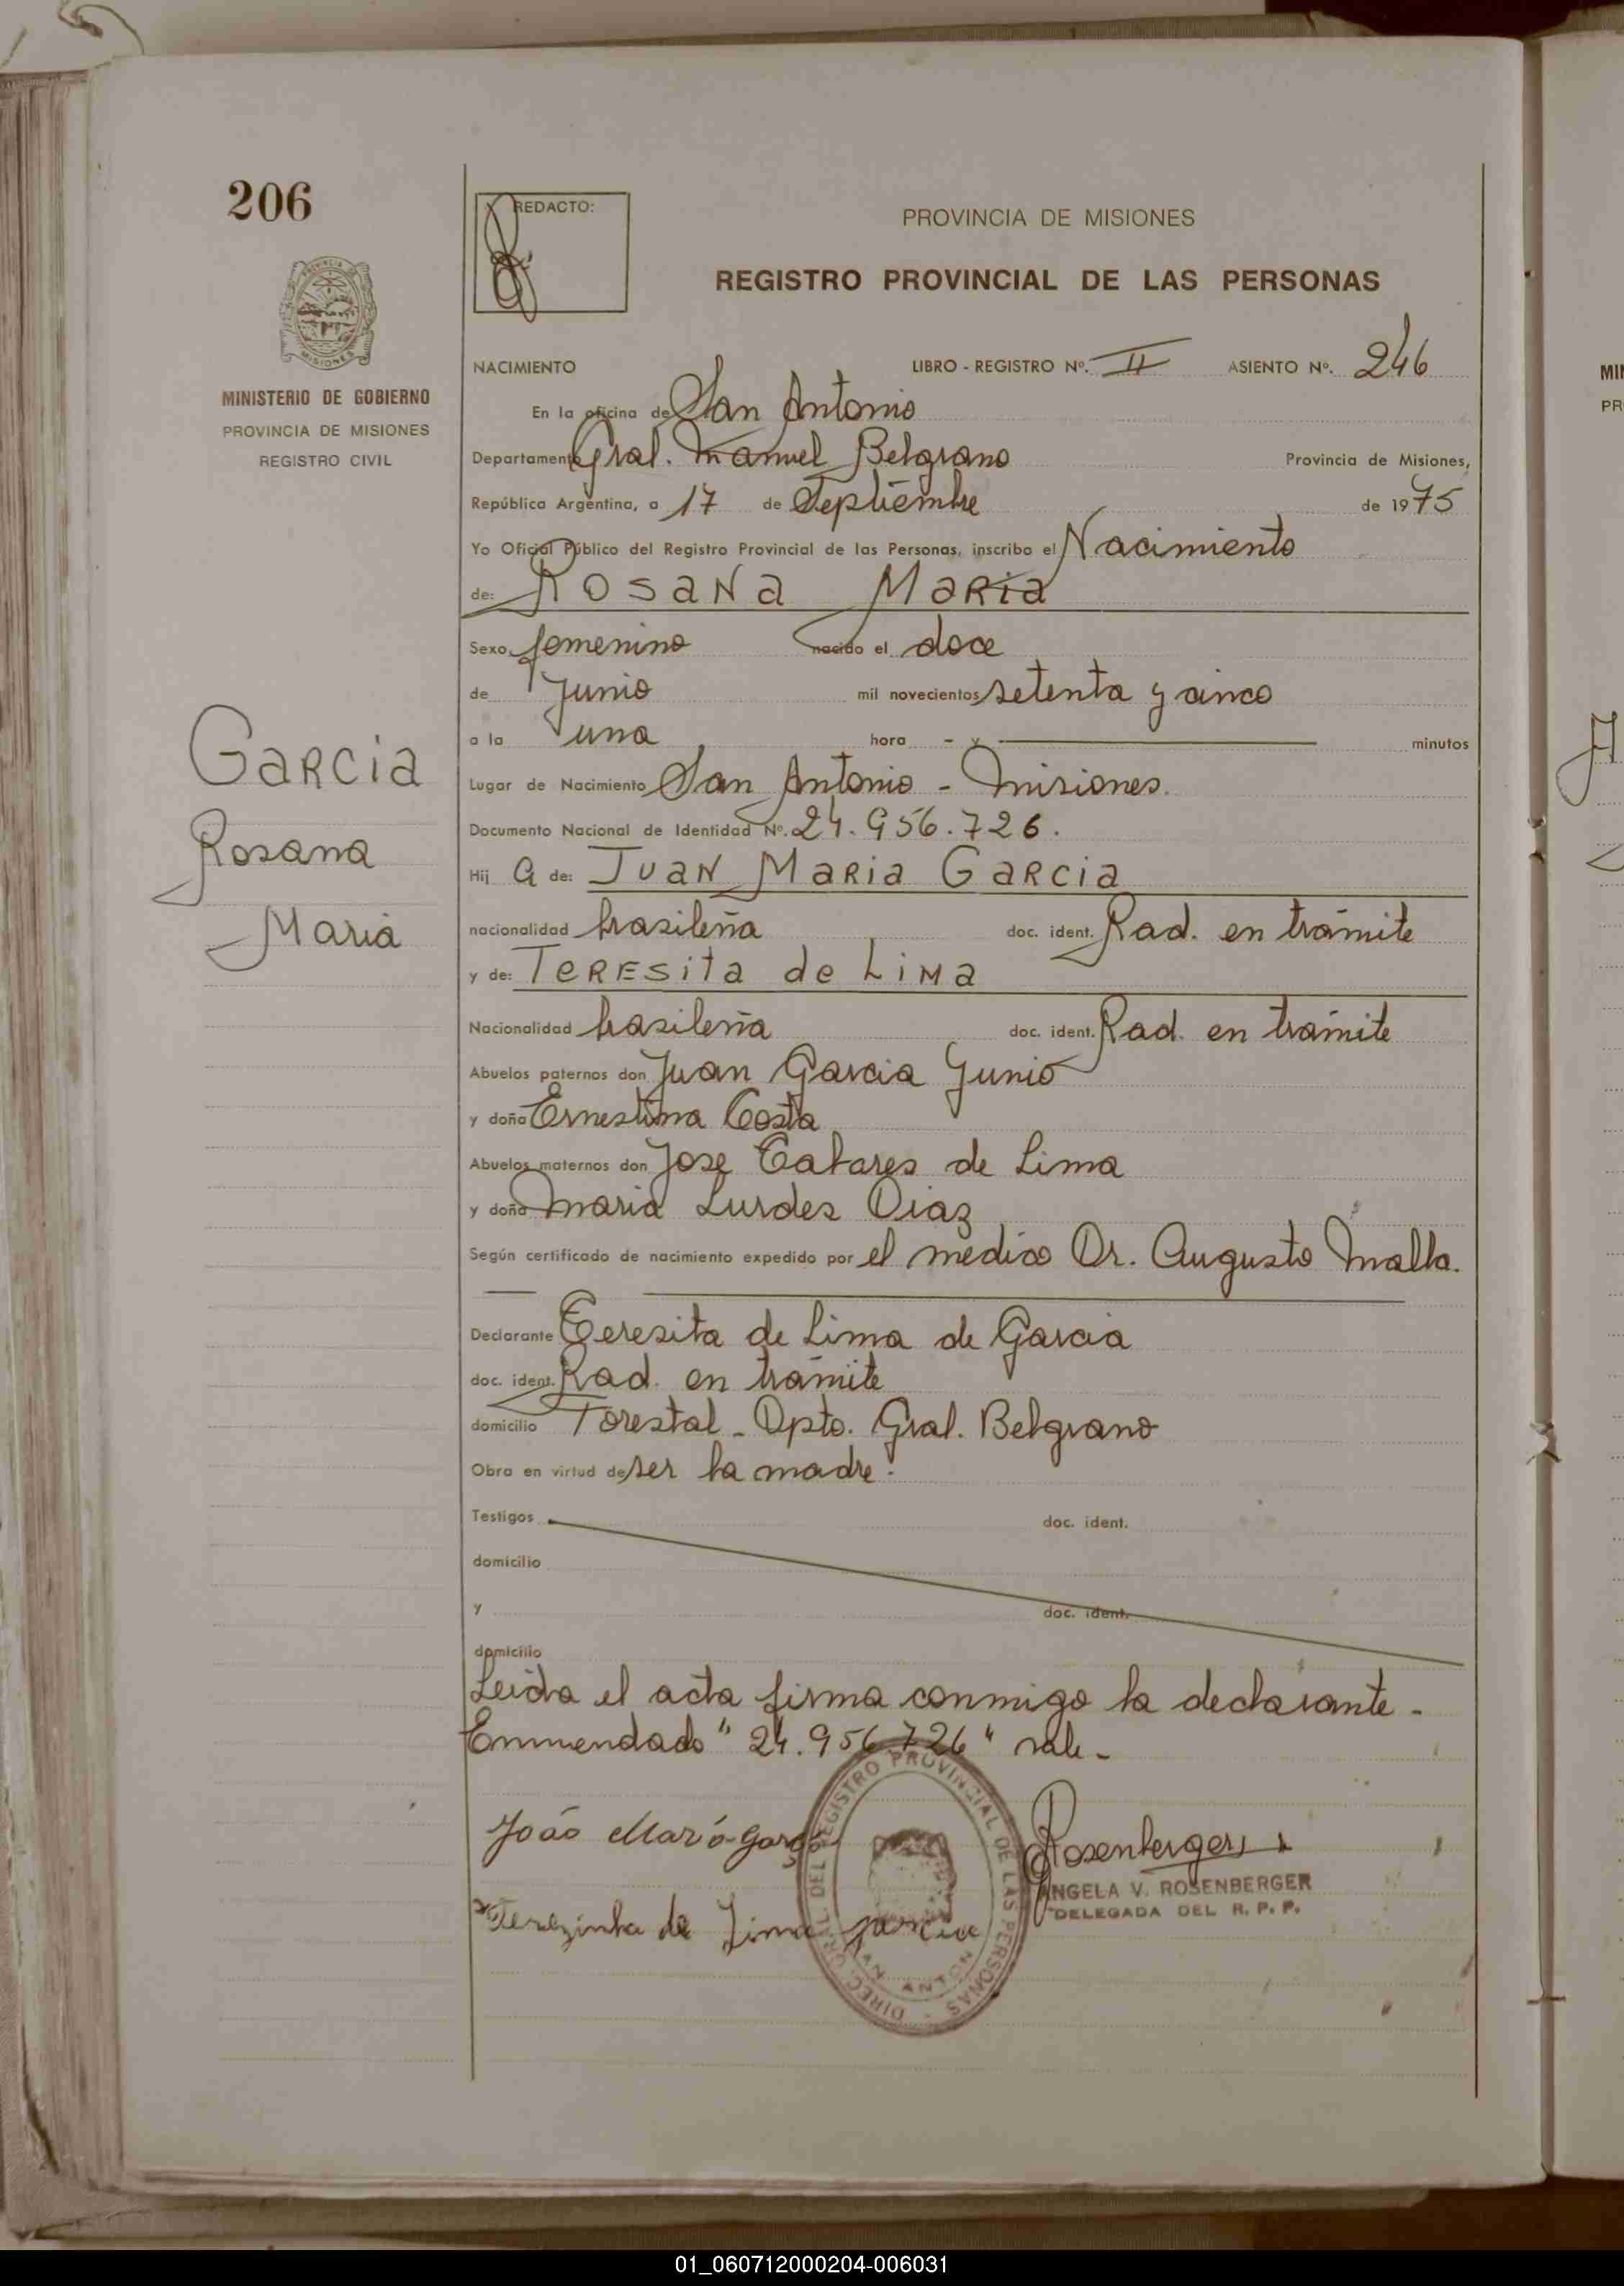 206
REDACTO:
PROVINCIA DE MISIONES
REGISTRO PROVINCIAL DE LAS PERSONAS
MINISTERIO DE GOBIERNO
PROVINCIA DE MISIONES
REGISTRO CIVIL
NACIMIENTO LIBRO - REGISTRO Nº. II ASIENTO Nº. 246
En la oficina de San Antonio
Departamento Gral. Manuel Belgrano Provincia de Misiones,
República Argentina, a 17 de Septiembre de 1975
Yo Oficial Público del Registro Provincial de las Personas, inscribo el Nacimiento
de: Rosana Maria
Sexo femenino nacido el doce
de Junio mil novecientos setenta y cinco
a la una hora - y minutos
Garcia
Rosana
Maria
Lugar de Nacimiento San Antonio - Misiones.
Documento Nacional de Identidad Nº. 24.956.726.
Hij a de: Juan Maria Garcia
nacionalidad brasileña doc. ident. Rad. en trámite
y de: Teresita de Lima
Nacionalidad brasileña doc. ident. Rad. en trámite
Abuelos paternos don Juan Garcia Junio
y doña Ernestina Costa
Abuelos maternos don Jose Tabares de Lima
y doña Maria Lurdes Diaz
Según certificado de nacimiento expedido por el médico Dr. Augusto Malla.
Declarante Teresita de Lima de Garcia
doc. ident. Rad. en trámite
domicilio Forestal - Dpto. Gral. Belgrano
Obra en virtud de ser la madre.
Testigos doc. ident.
domicilio
y doc. ident.
domicilio
Leida el acta firma conmigo la declarante -
Enmendado "24.956.726" vale -
João Mario Garcia
Rosenberger
ANGELA V. ROSENBERGER
DELEGADA DEL R. P. P.
Terezinha de Lima garcia
DIREC. GRAL. DEL REGISTRO PROVINCIAL DE LAS PERSONAS
SAN ANTONIO
01_060712000204-006031